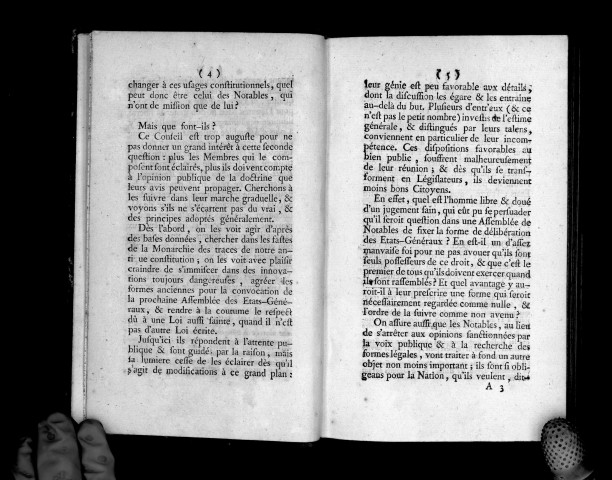 ( 4 )
changer à ces usages constitutionnels, quel
peut donc être celui des Notables, qui
n'ont de mission que de lui?
Mais que font-ils?
Ce Conseil est trop auguste pour ne
pas donner un grand intérêt à cette seconde
question: plus les Membres qui le com-
posent sont éclairés, plus ils doivent compte
à l'opinion publique de la doctrine que
leurs avis peuvent propager. Cherchons à
les suivre dans leur marche graduelle, &
voyons s'ils ne s'écartent pas du vrai, &
des principes adoptés généralement.
Dès l'abord, on les voit agir d'après
des bases données, chercher dans les fastes
de la Monarchie des traces de notre an-
tique constitution; on les voit avec plaisir
craindre de s'immiscer dans des innova-
tions toujours dangereuses, agréer les
formes anciennes pour la convocation de
la prochaine Assemblée des Etats-Géné-
raux, & rendre à la coutume le respect
dû à une Loi aussi sainte, quand il n'est
pas d'autre Loi écrite.
Jusqu'ici ils répondent à l'attente pu-
blique & sont guidés par la raison, mais
sa lumiere cesse de les éclairer dès qu'il
s'agit de modifications à ce grand plan:
( 5 )
leur génie est peu favorable aux détails,
dont la discussion les égare & les entraîne
au-delà du but. Plusieurs d'entr'eux (& ce
n'est pas le petit nombre) investis de l'estime
générale, & distingués par leurs talens,
conviennent en particulier de leur incom-
pétence. Ces dispositions favorables au
bien public, souffrent malheureusement
de leur réunion; & dès qu'ils se trans-
forment en Législateurs, ils deviennent
moins bons Citoyens.
En effet, quel est l'homme libre & doué
d'un jugement sain, qui eût pu se persuader
qu'il seroit question dans une Assemblée de
Notables de fixer la forme de délibération
des Etats-Généraux? En est-il un d'assez
mauvaise foi pour ne pas avouer qu'ils sont
seuls possesseurs de ce droit, & que c'est le
premier de tous qu'ils doivent exercer quand
ils sont rassemblés? Et quel avantage y au-
roit-il à leur prescrire une forme qui seroit
nécessairement regardée comme nulle, &
l'ordre de la suivre comme non avenu?
On assure aussi que les Notables, au lieu
de s'arrêter aux opinions sanctionnées par
la voix publique & à la recherche des
formes légales, vont traiter à fond un autre
objet non moins important; ils sont si obli-
geans pour la Nation, qu'ils veulent, dit-
A 3